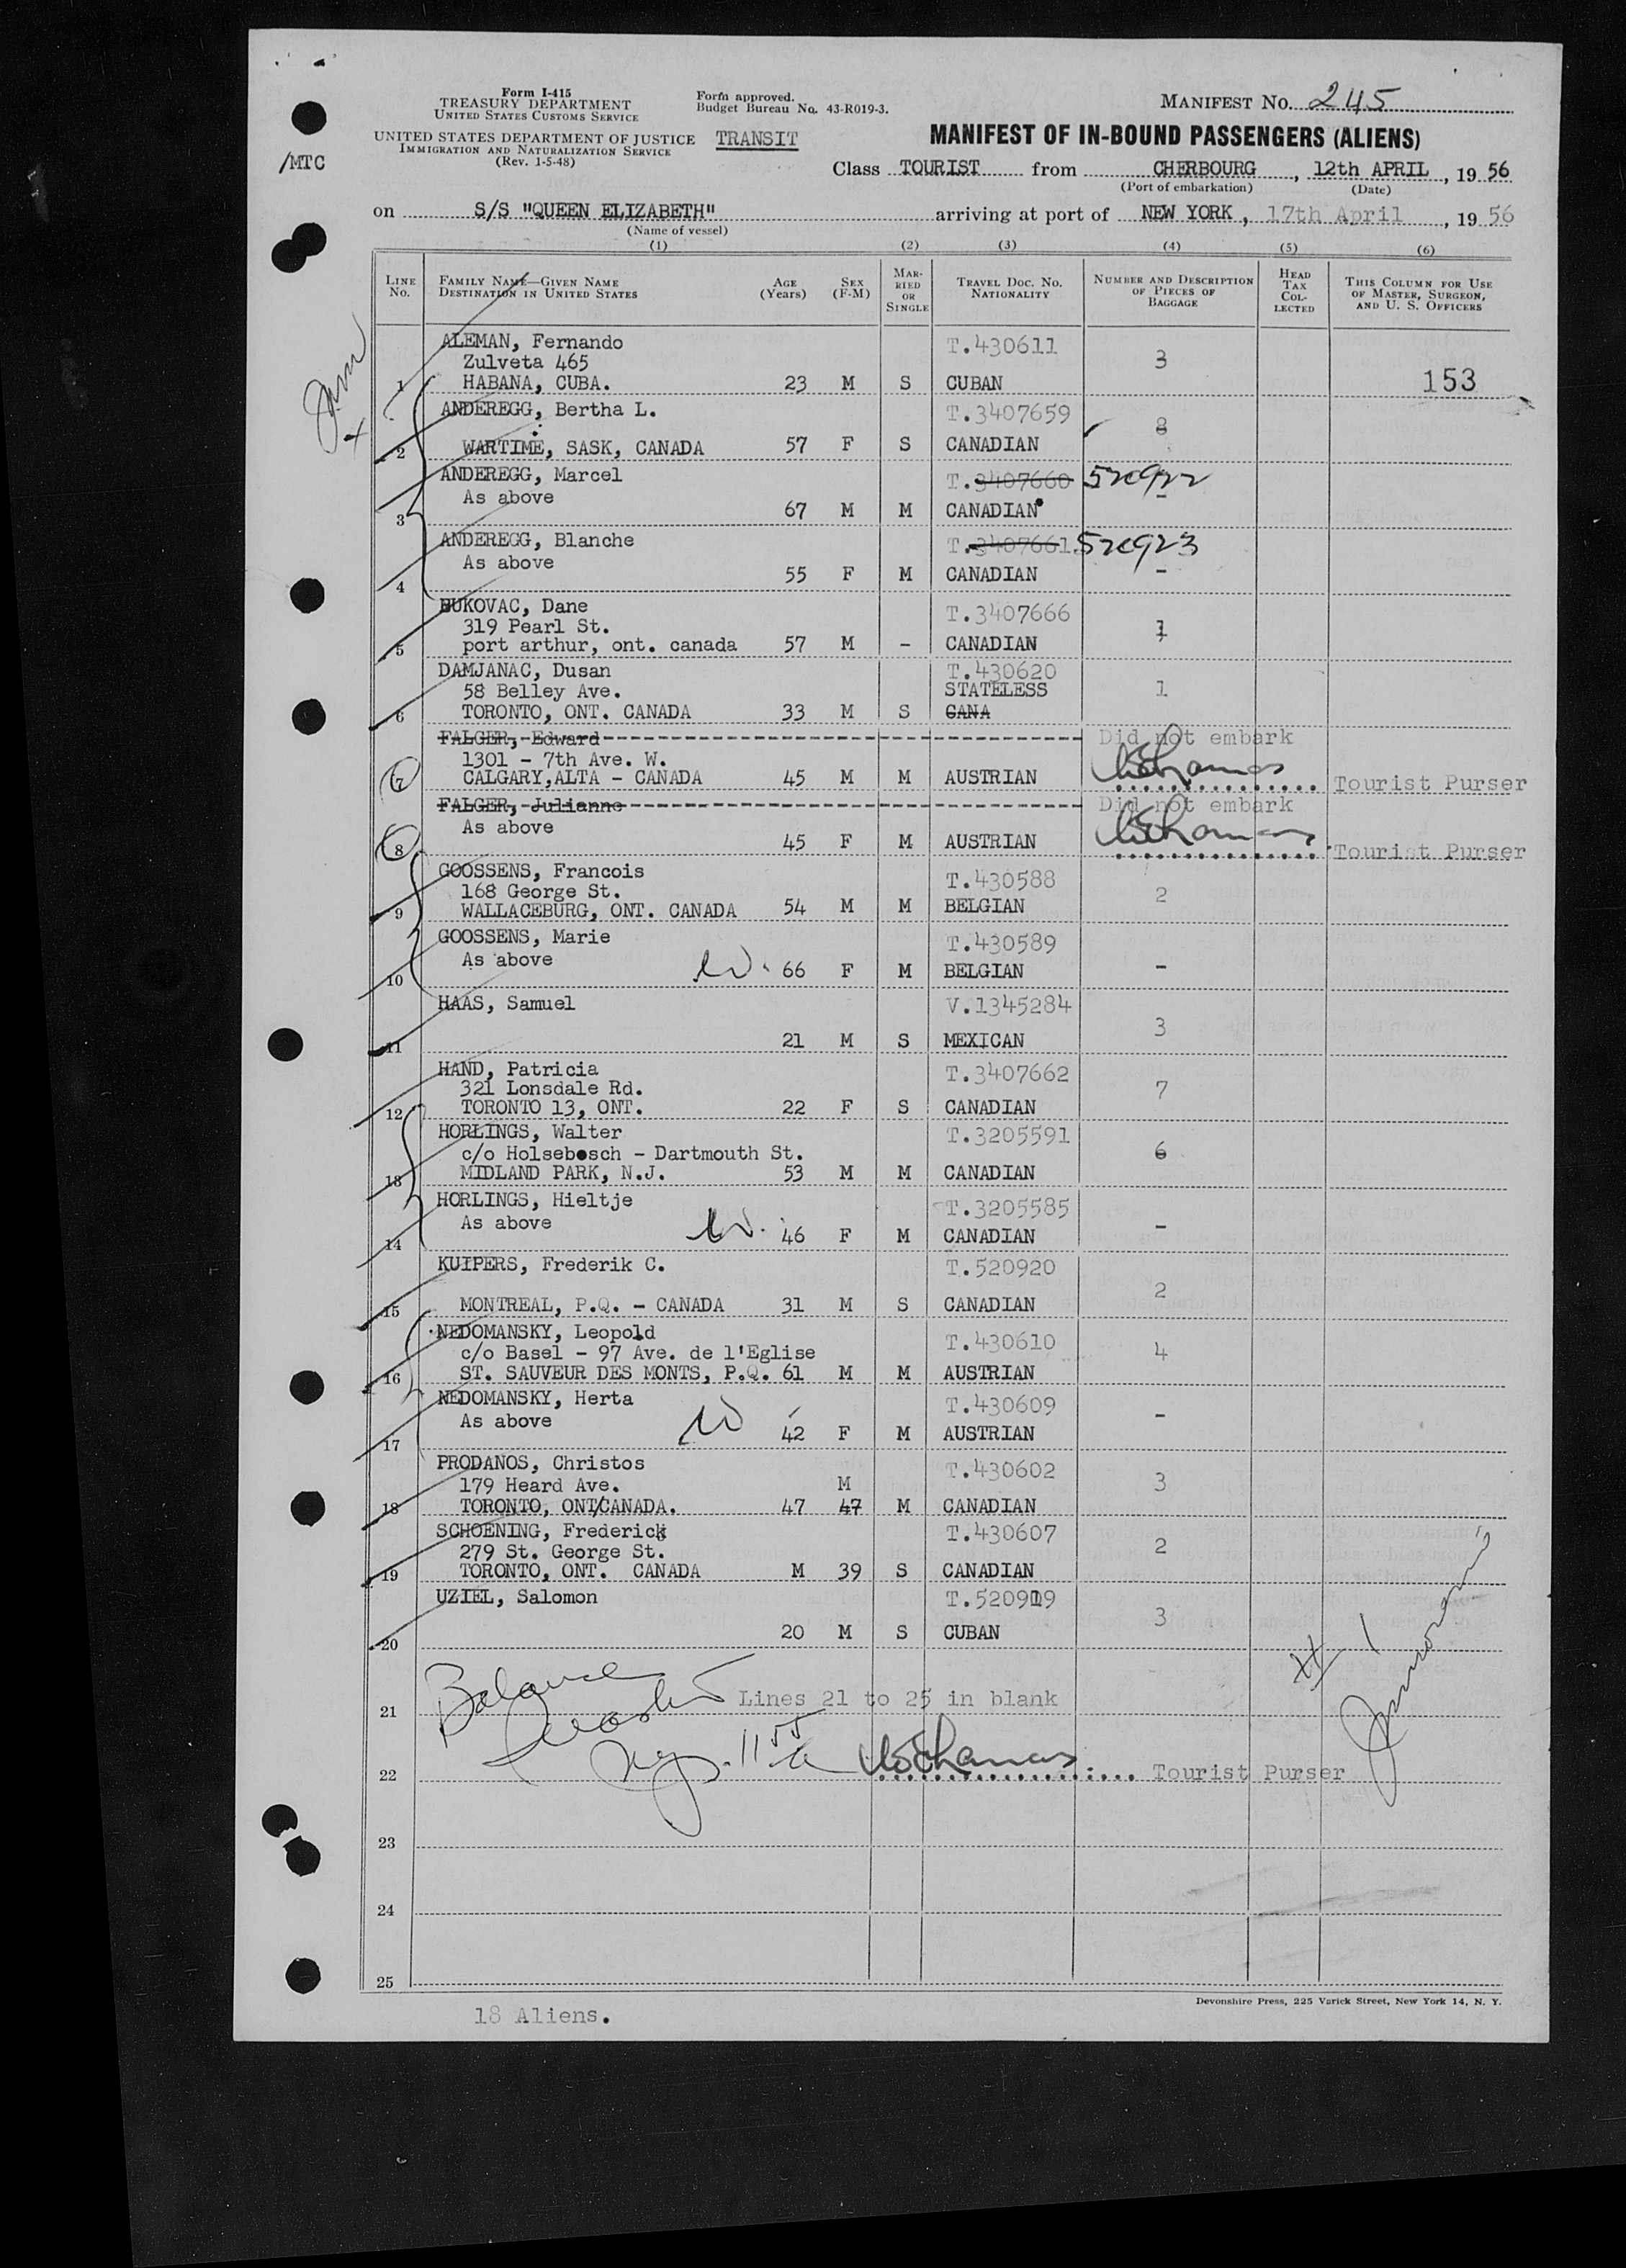 Form I-415
TREASURY DEPARTMENT
UNITED STATES CUSTOMS SERVICE
UNITED STATES DEPARTMENT OF JUSTICE
IMMIGRATION AND NATURALIZATION SERVICE
(Rev. 1-5-48)
/MTC
Form approved.
Budget Bureau No. 43-R019-3.
TRANSIT
MANIFEST NO. 245
MANIFEST OF IN-BOUND PASSENGERS (ALIENS)
Class TOURIST from CHERBOURG, 12th APRIL, 1956
(Port of embarkation) (Date)
on S/S "QUEEN ELIZABETH" arriving at port of NEW YORK, 17th April, 1956
(Name of vessel)
(1) (2) (3) (4) (5) (6)
LINE NO.
FAMILY NAME—GIVEN NAME
DESTINATION IN UNITED STATES
AGE (Years)
SEX (F-M)
MARRIED OR SINGLE
TRAVEL DOC. NO. NATIONALITY
NUMBER AND DESCRIPTION OF PIECES OF BAGGAGE
HEAD TAX COLLECTED
THIS COLUMN FOR USE OF MASTER, SURGEON, AND U. S. OFFICERS
ALEMAN, Fernando T.430611
Zulveta 465 3
1 HABANA, CUBA. 23 M S CUBAN 153
ANDEREGG, Bertha L. T.3407659
8
2 WARTIME, SASK, CANADA 57 F S CANADIAN
ANDEREGG, Marcel T.3407660 520922
As above -
3 67 M M CANADIAN
ANDEREGG, Blanche T.3407661 520923
As above
4 55 F M CANADIAN -
BUKOVAC, Dane T.3407666
319 Pearl St. 1
5 port arthur, ont. canada 57 M - CANADIAN
DAMJANAC, Dusan T.430620
58 Belley Ave. STATELESS 1
6 TORONTO, ONT. CANADA 33 M S CANA
FALGER, Edward Did not embark
1301 - 7th Ave. W.
7 CALGARY,ALTA - CANADA 45 M M AUSTRIAN Tourist Purser
FALGER, Julianne Did not embark
As above
8 45 F M AUSTRIAN Tourist Purser
GOOSSENS, Francois T.430588
168 George St. 2
9 WALLACEBURG, ONT. CANADA 54 M M BELGIAN
GOOSSENS, Marie T.430589
As above
10 W. 66 F M BELGIAN -
HAAS, Samuel V.1345284
3
11 21 M S MEXICAN
HAND, Patricia T.3407662
321 Lonsdale Rd. 7
12 TORONTO 13, ONT. 22 F S CANADIAN
HORLINGS, Walter T.3205591
c/o Holsebosch - Dartmouth St. 6
13 MIDLAND PARK, N.J. 53 M M CANADIAN
HORLINGS, Hieltje T.3205585
As above -
14 W. 46 F M CANADIAN
KUIPERS, Frederik C. T.520920
2
15 MONTREAL, P.Q. - CANADA 31 M S CANADIAN
NEDOMANSKY, Leopold T.430610
c/o Basel - 97 Ave. de l'Eglise 4
16 ST. SAUVEUR DES MONTS, P.Q. 61 M M AUSTRIAN
NEDOMANSKY, Herta T.430609
As above -
17 W 42 F M AUSTRIAN
PRODANOS, Christos T.430602
179 Heard Ave. M 3
18 TORONTO, ONT/CANADA. 47 47 M CANADIAN
SCHOENING, Frederick T.430607
279 St. George St. 2
19 TORONTO, ONT. CANADA M 39 S CANADIAN
UZIEL, Salomon T.520919
3
20 20 M S CUBAN
Balance
21 Lines 21 to 25 in blank
22 Tourist Purser
23
24
25
Devonshire Press, 225 Varick Street, New York 14, N. Y.
18 Aliens.